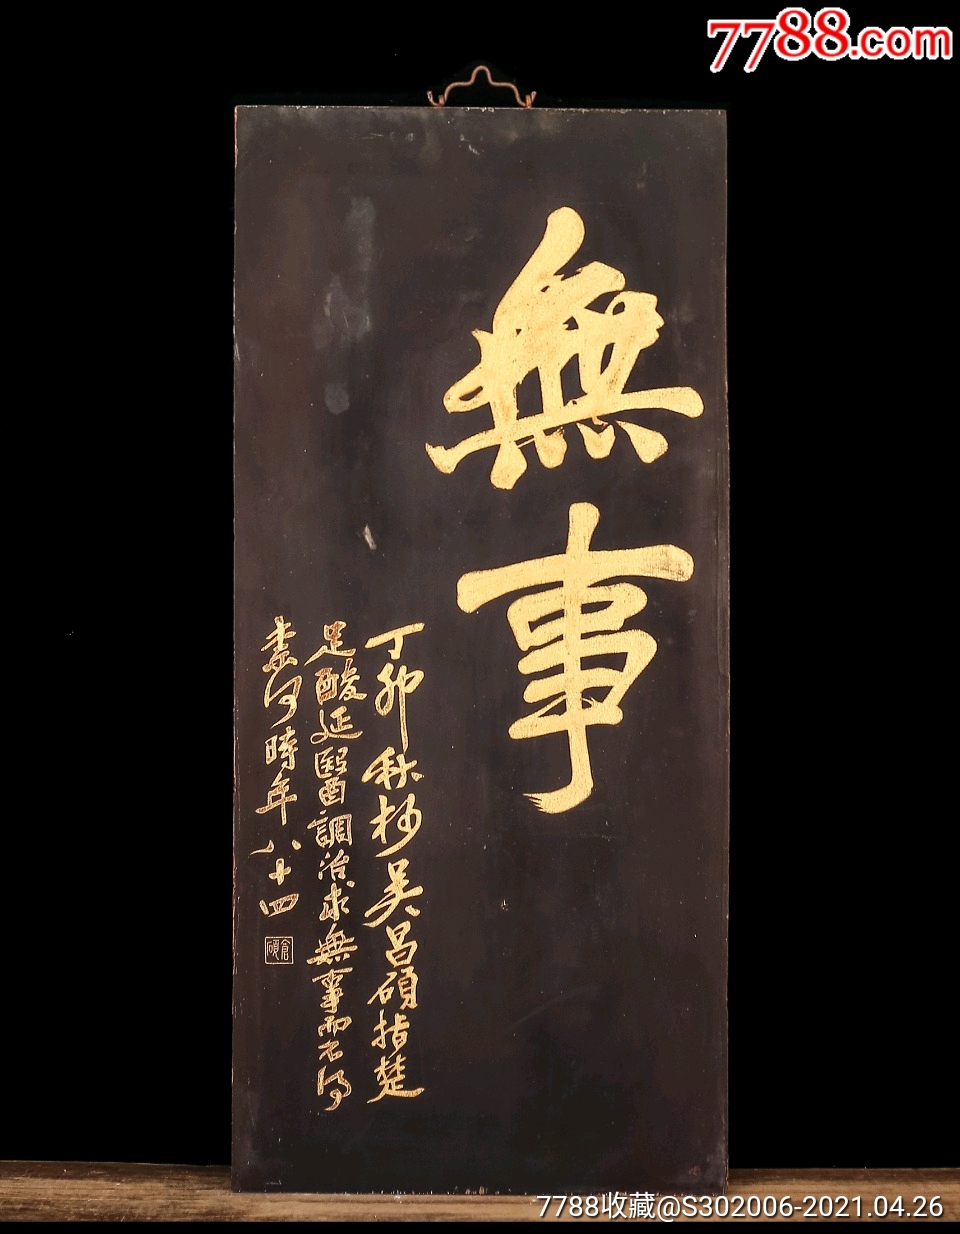 7788.com
無事
丁卯秋杪吳昌碩指楚
足酸延醫調治求無事而不得
柰何時年八十四
倉碩
7788收藏@S302006-2021.04.26